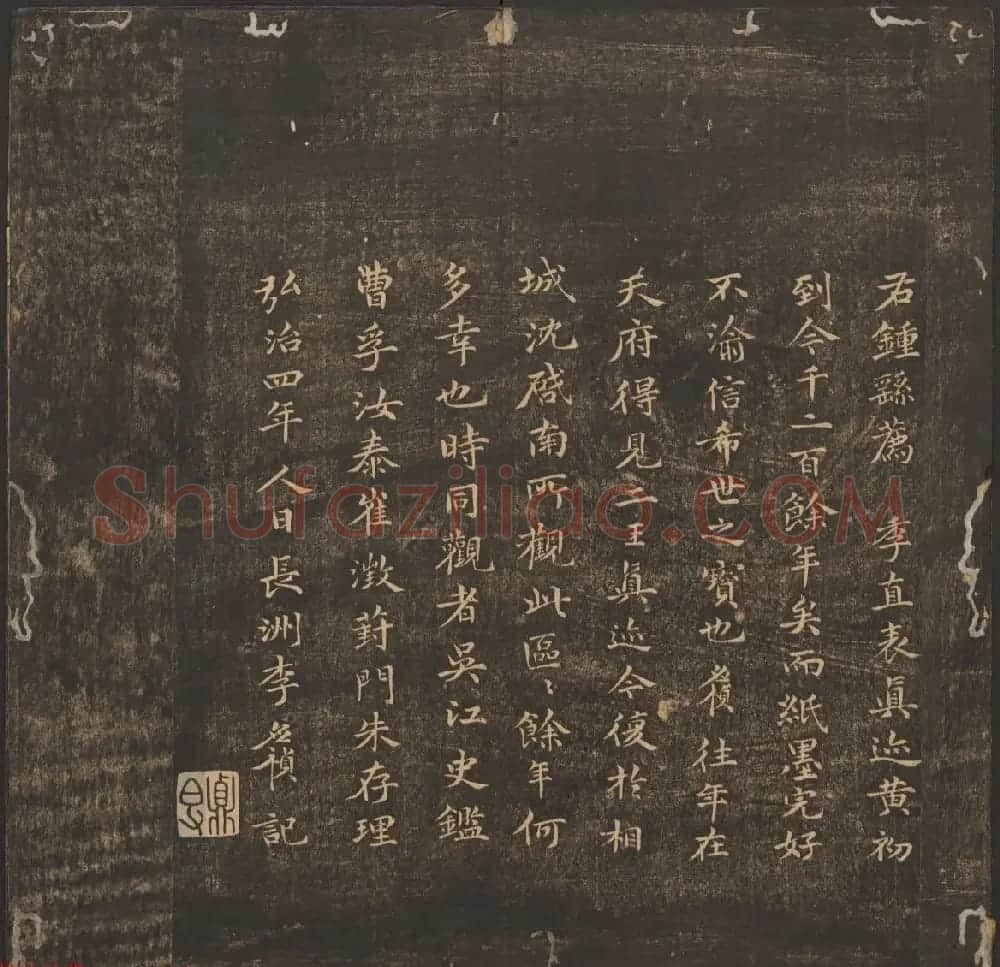 右鍾繇薦季直表眞迹黄初
到今千二百餘年矣而紙墨完好
不渝信希世之寶也應禎往年在
天府得見二王眞迹今復於相
城沈啓南所觀此區〻餘年何
多幸也時同觀者吳江史鑑
曹孚汝泰崔澂葑門朱存理
弘治四年人日長洲李應禎記
Shufaziliao.COM